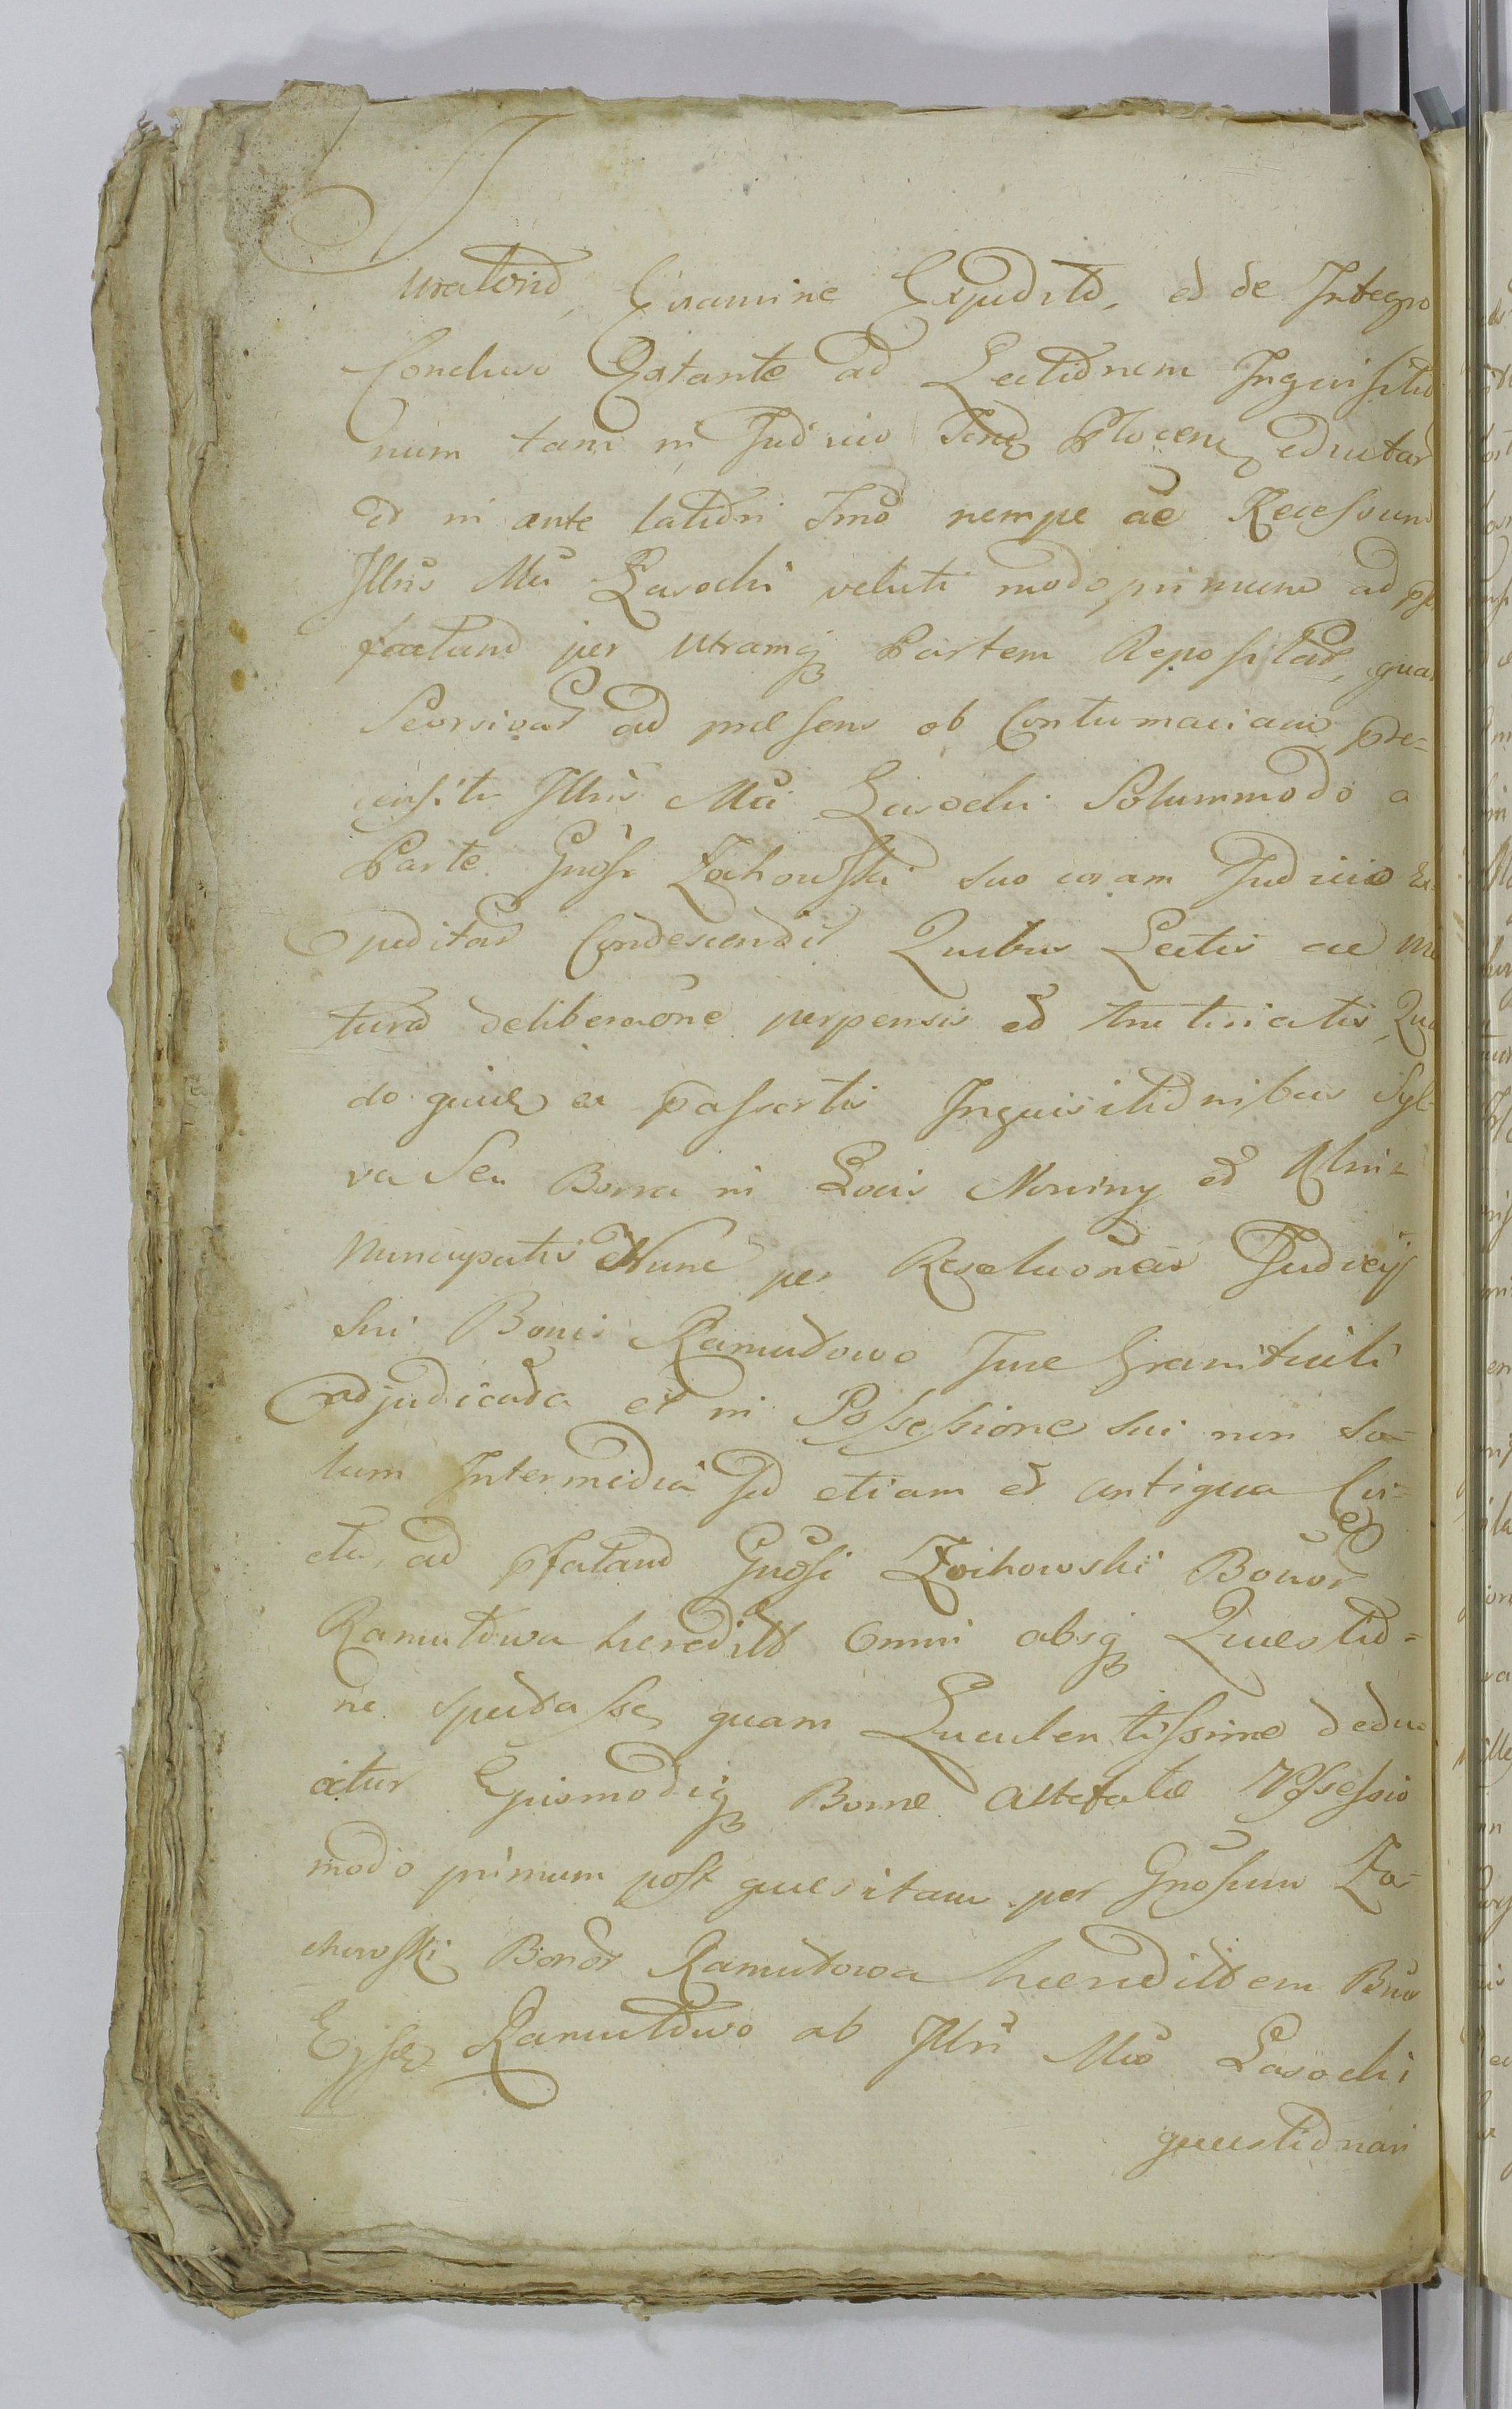 Juratorio, Examine Expedito, et de Integro
Concluso Extante ad Lectionem Inquisitio
num tam in Judicio Plocen eductar
et in ante lationi Imo nempe ac Recessum
Illris Mci Lasocki veluti modo primum ad
factand per utramq Partem Repositar, qua
Seorsivas ad præsens ob Contumaciam præ-
censiti Illris Mci Lasocki Solummodo a
Parte Gnosi Zochowski suo coram Judicio Ex
peditas Condescendit Quibus Lectis ac ma
tura deliberaone perpensis et trutinatis, Qua
do quidem ex passertis Inquisitionibus Syl-
va Seu Borra in Locis Nowiny et
Nuncupatis Nunc per Resolutionem Judicij
sui Bonis Ramutowo Jure Granituali
adjudicata et in Possessione sui non so-
lum Intermedia sed etiam et antiqua
ad pfatand Gnosi Zochowski Bonor
Ramutowa heredit Omni absq Questio-
ne spectasse quam Luculentissime dedu
citur Ejusmodiq Borræ attefatæ Possessio
modo primum post quesitam per Gnosum Zo-
chowski Bonor Ramutowa heredittem Bna
Ejsd Ramutowo ab Illri Mco Lasocki
questionari